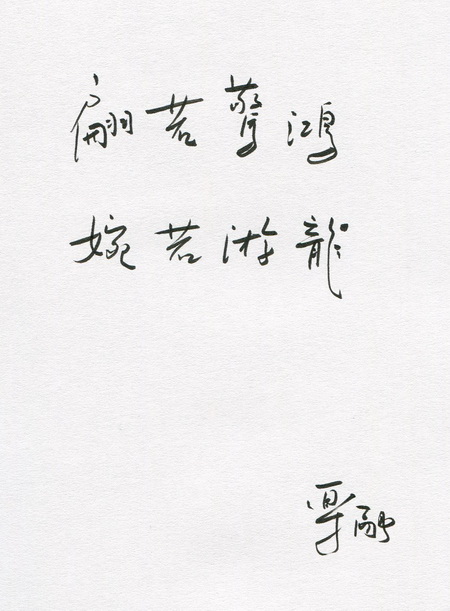 翩若驚鴻
婉若游龍